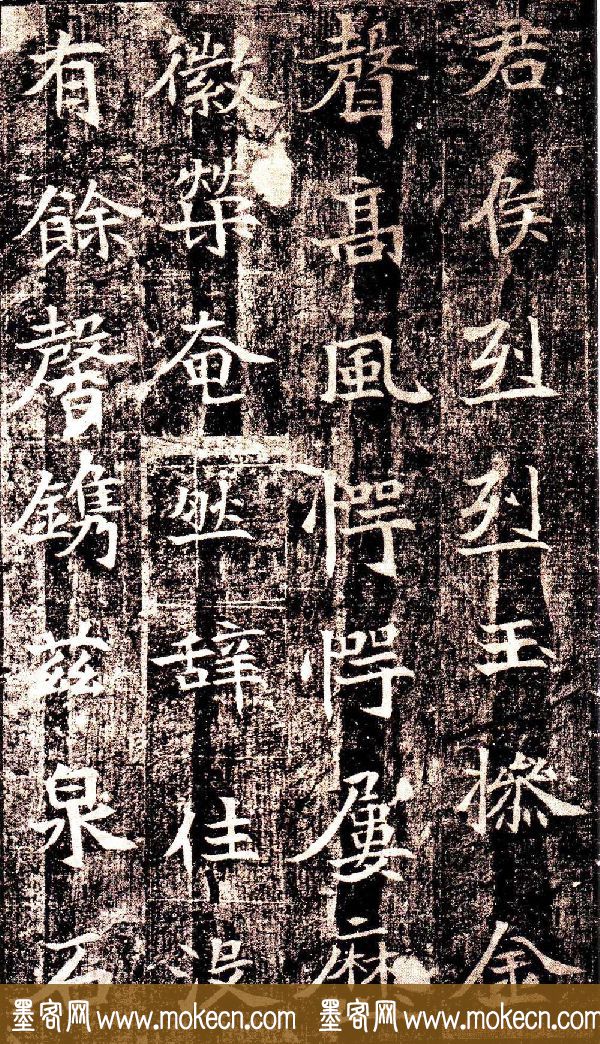 君侯烈烈玉操金
聲高風愕愕屢歷
徽榮奄然辞往没
有餘馨鐫兹泉石
墨客网 www.mokecn.com 墨客网 www.mokecn.com